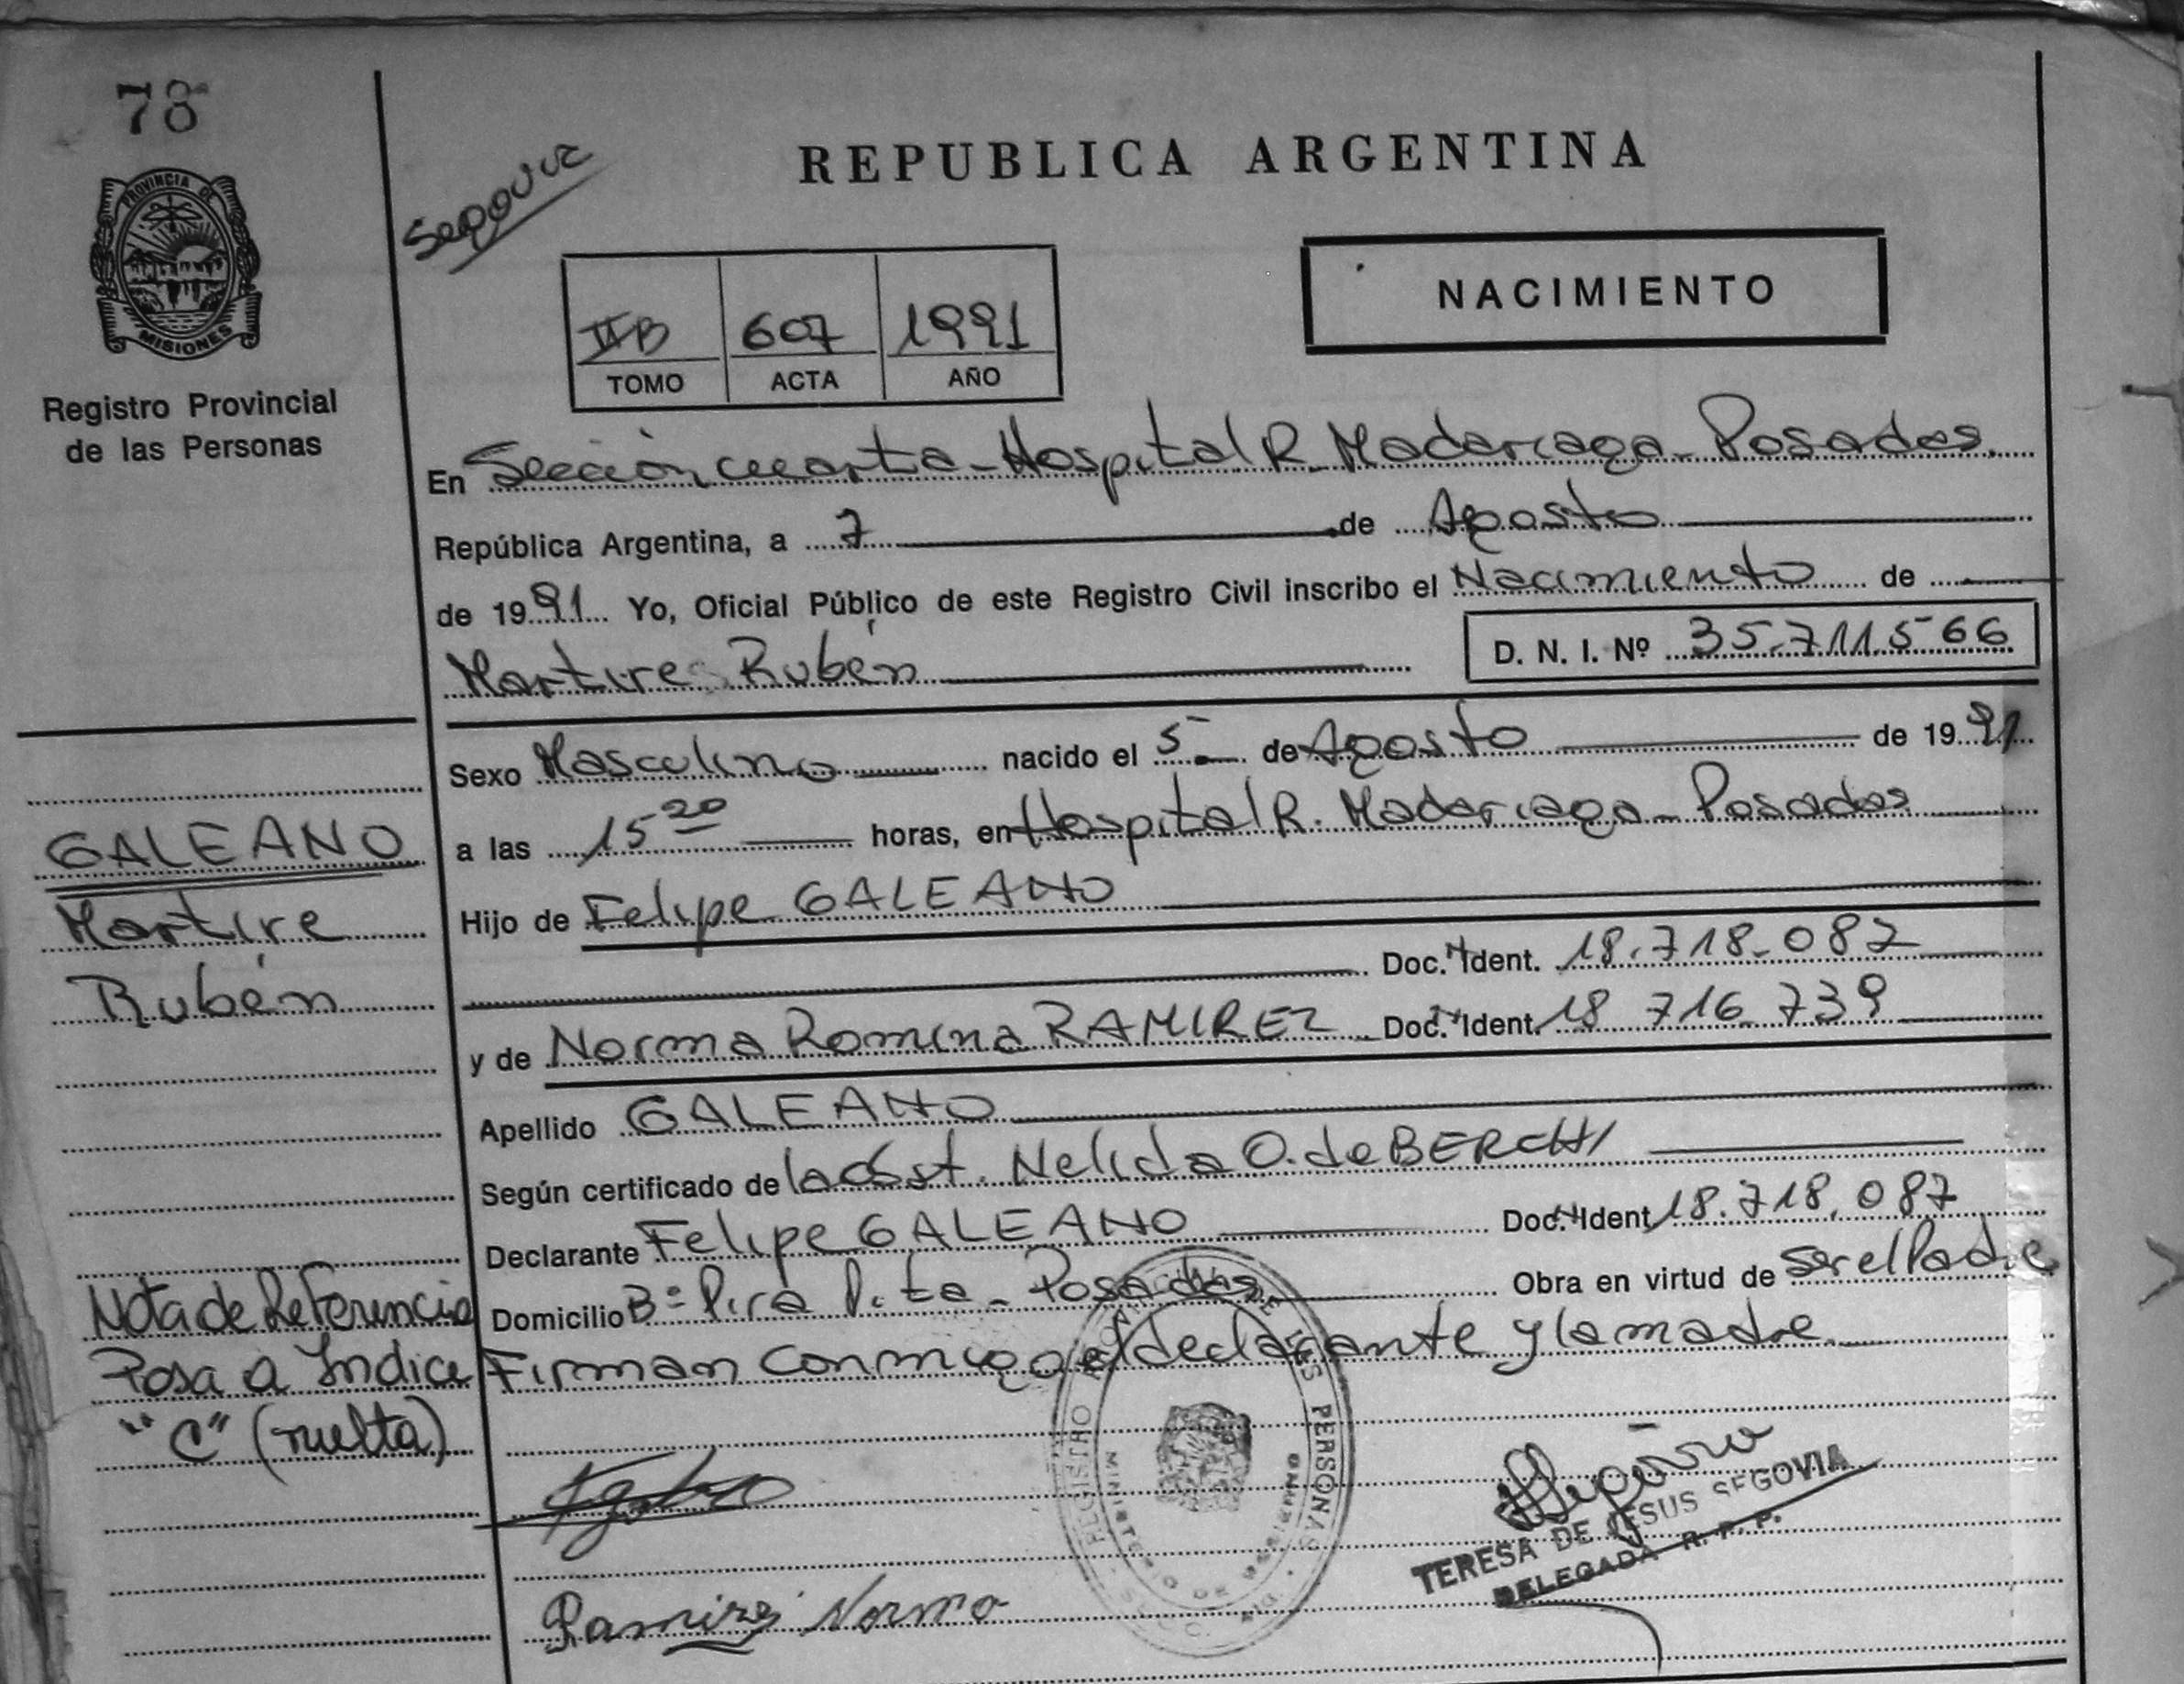 78
PROVINCIA DE
MISIONES
Registro Provincial
de las Personas
Segovia
REPUBLICA ARGENTINA
NACIMIENTO
IIB 607 1991
TOMO ACTA AÑO
En Sección cuarta - Hospital R. Madariaga - Posadas
República Argentina, a 7 de Agosto
de 1991 Yo, Oficial Público de este Registro Civil inscribo el Nacimiento de
Martire Rubén
D. N. I. Nº 35.711.566
Sexo Masculino nacido el 5 de Agosto de 1991
a las 15 20 horas, en Hospital R. Madariaga - Posadas
Hijo de Felipe GALEANO
Doc. Ident. 18.718.087
y de Norma Romina RAMIREZ Doc. Ident. 18 716 739
Apellido GALEANO
Según certificado de la Obst. Nelida O. de BERCHI
Declarante Felipe GALEANO Doc. Ident 18.718.087
Domicilio Bº Pira Pita - Posadas Obra en virtud de ser el Padre
Firman conmigo el declarante y la madre
GALEANO
Martire
Rubén
Nota de Referencia
Pasa a Indice
"C" (vuelta)
REGISTRO PROVINCIAL DE LAS PERSONAS
MINISTERIO DE GOBIERNO
Ramirez Norma
TERESA DE JESUS SEGOVIA
DELEGADA R. P. P.